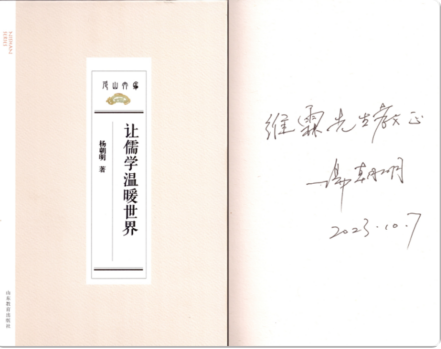 让儒学温暖世界
杨朝明 著
山东教育出版社
维霖先生教正
杨朝明
2023.10.7